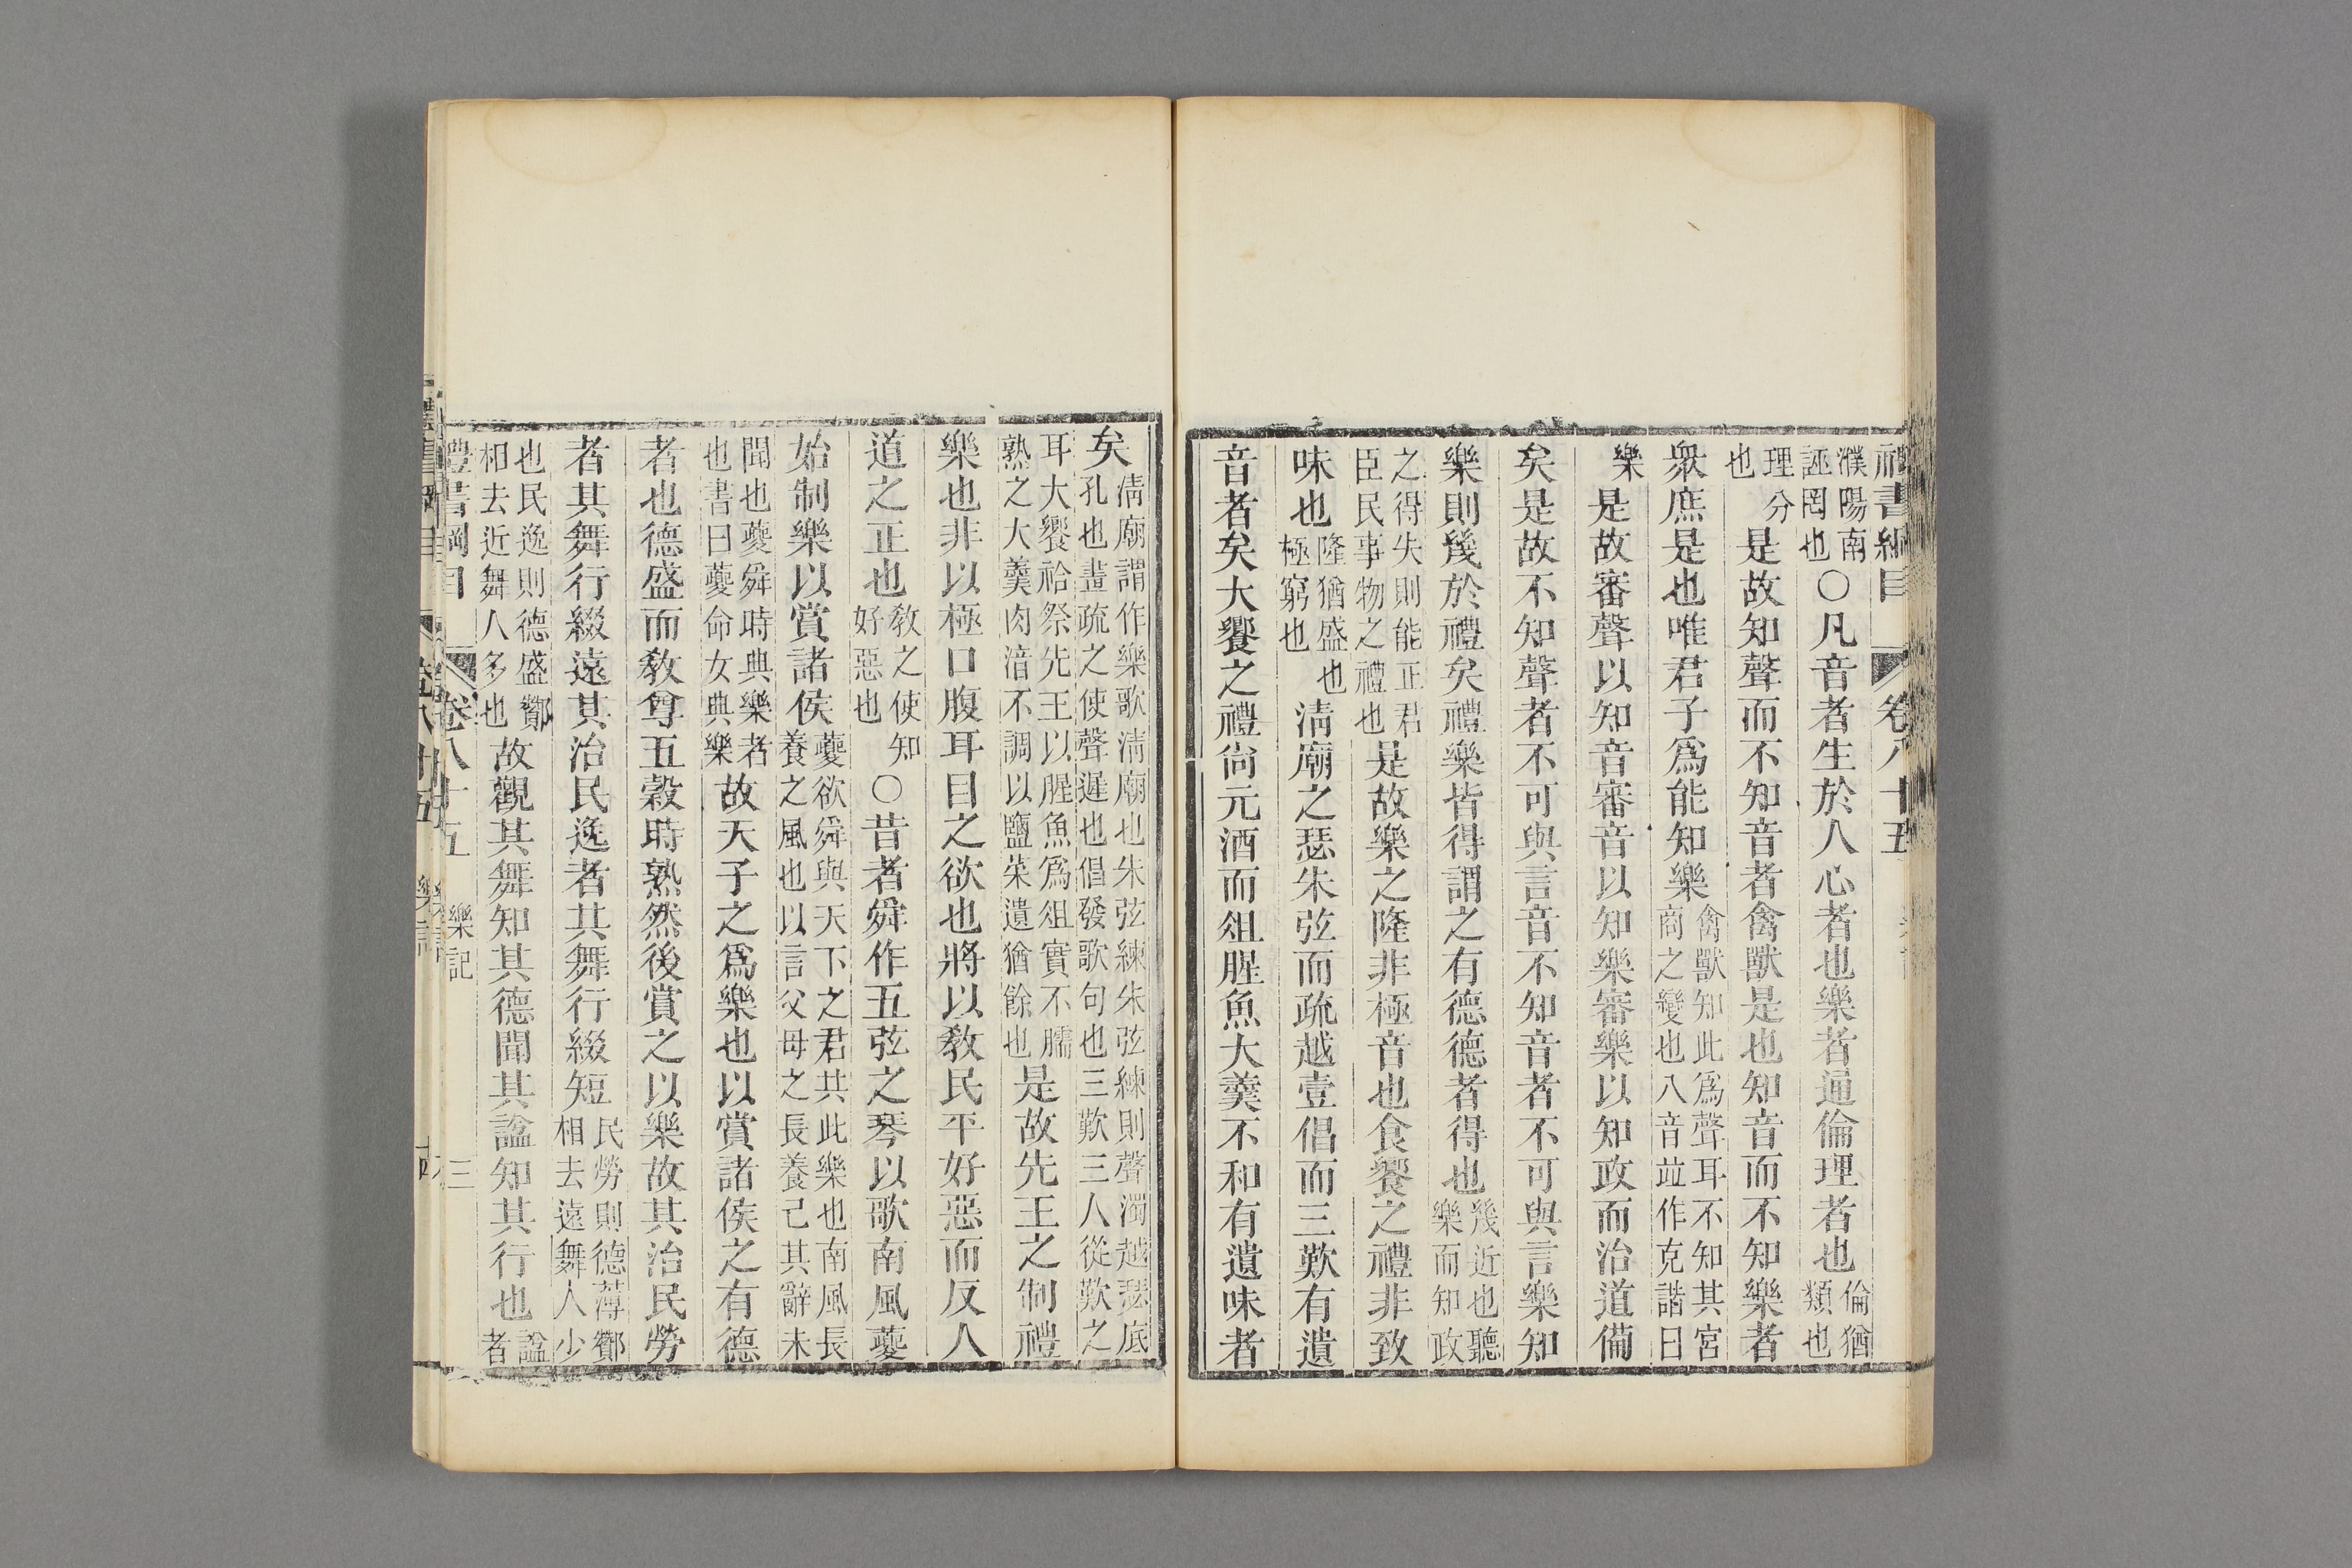 禮書綱目 卷八十五
濮陽南誣罔也○凡音者生於人心者也樂者通倫理者也倫猶類也
理分也是故知聲而不知音者禽獸是也知音而不知樂者
衆庶是也唯君子爲能知樂禽獸知此爲聲耳不知其宮商之變也八音並作克諧曰
樂是故審聲以知音審音以知樂審樂以知政而治道備
矣是故不知聲者不可與言音不知音者不可與言樂知
樂則幾於禮矣禮樂皆得謂之有德德者得也幾近也聽樂而知政
之得失則能正君臣民事物之禮也是故樂之隆非極音也食饗之禮非致
味也隆猶盛也極窮也清廟之瑟朱弦而疏越壹倡而三歎有遺
音者矣大饗之禮尙元酒而俎腥魚大羹不和有遺味者
矣清廟謂作樂歌清廟也朱弦練朱弦練則聲濁越瑟底孔也畫疏之使聲遲也倡發歌句也三歎三人從歎之
耳大饗祫祭先王以腥魚爲俎實不臑熟之大羹肉湆不調以鹽菜遺猶餘也是故先王之制禮
樂也非以極口腹耳目之欲也將以敎民平好惡而反人
道之正也敎之使知好惡也○昔者舜作五弦之琴以歌南風夔
始制樂以賞諸侯夔欲舜與天下之君共此樂也南風長養之風也以言父母之長養己其辭未
聞也夔舜時典樂者也書曰夔命女典樂故天子之爲樂也以賞諸侯之有德
者也德盛而敎尊五穀時熟然後賞之以樂故其治民勞
者其舞行綴遠其治民逸者其舞行綴短民勞則德薄酇相去遠舞人少
也民逸則德盛酇相去近舞人多也故觀其舞知其德聞其諡知其行也諡者
禮書綱目 卷八十五 樂記 三